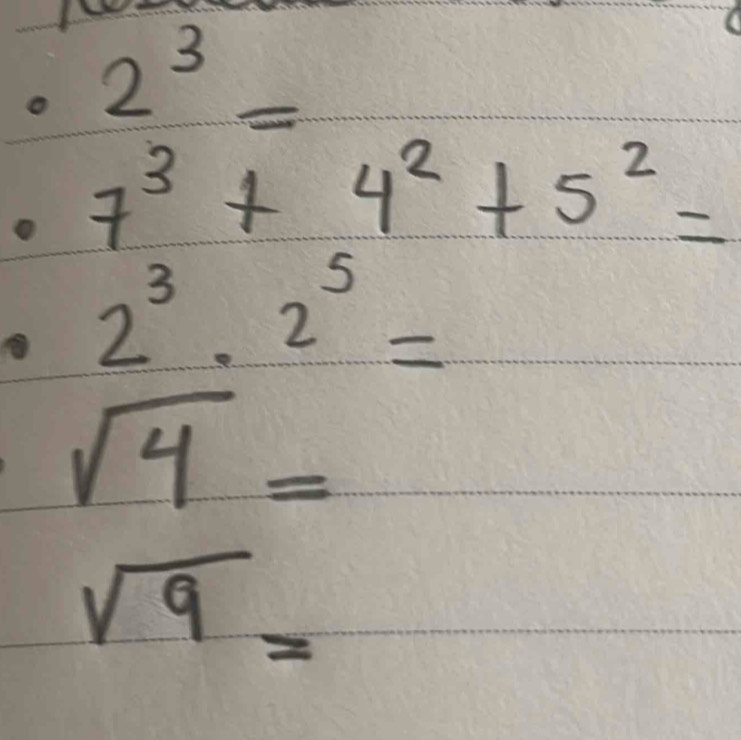 • 2³ =
• 7³ + 4² + 5² =
• 2³ . 2⁵ =
√4 =
√9 =